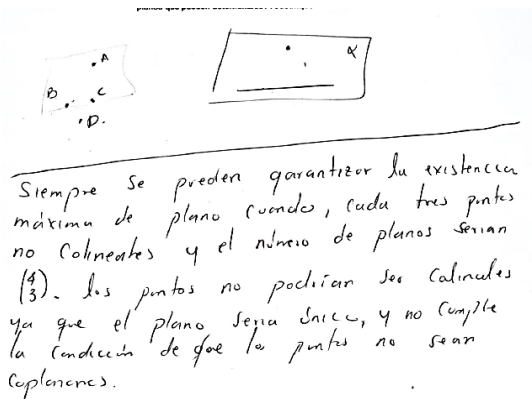 planos que pueden determinarse
A
B
C
D.
α
Siempre se pueden garantizar la existencia
máxima de plano cuando, cada tres puntos
no colineales y el número de planos serian
(4 3). los puntos no podrian ser colineales
ya que el plano seria único, y no cumple
la condición de que los puntos no sean
coplanares.